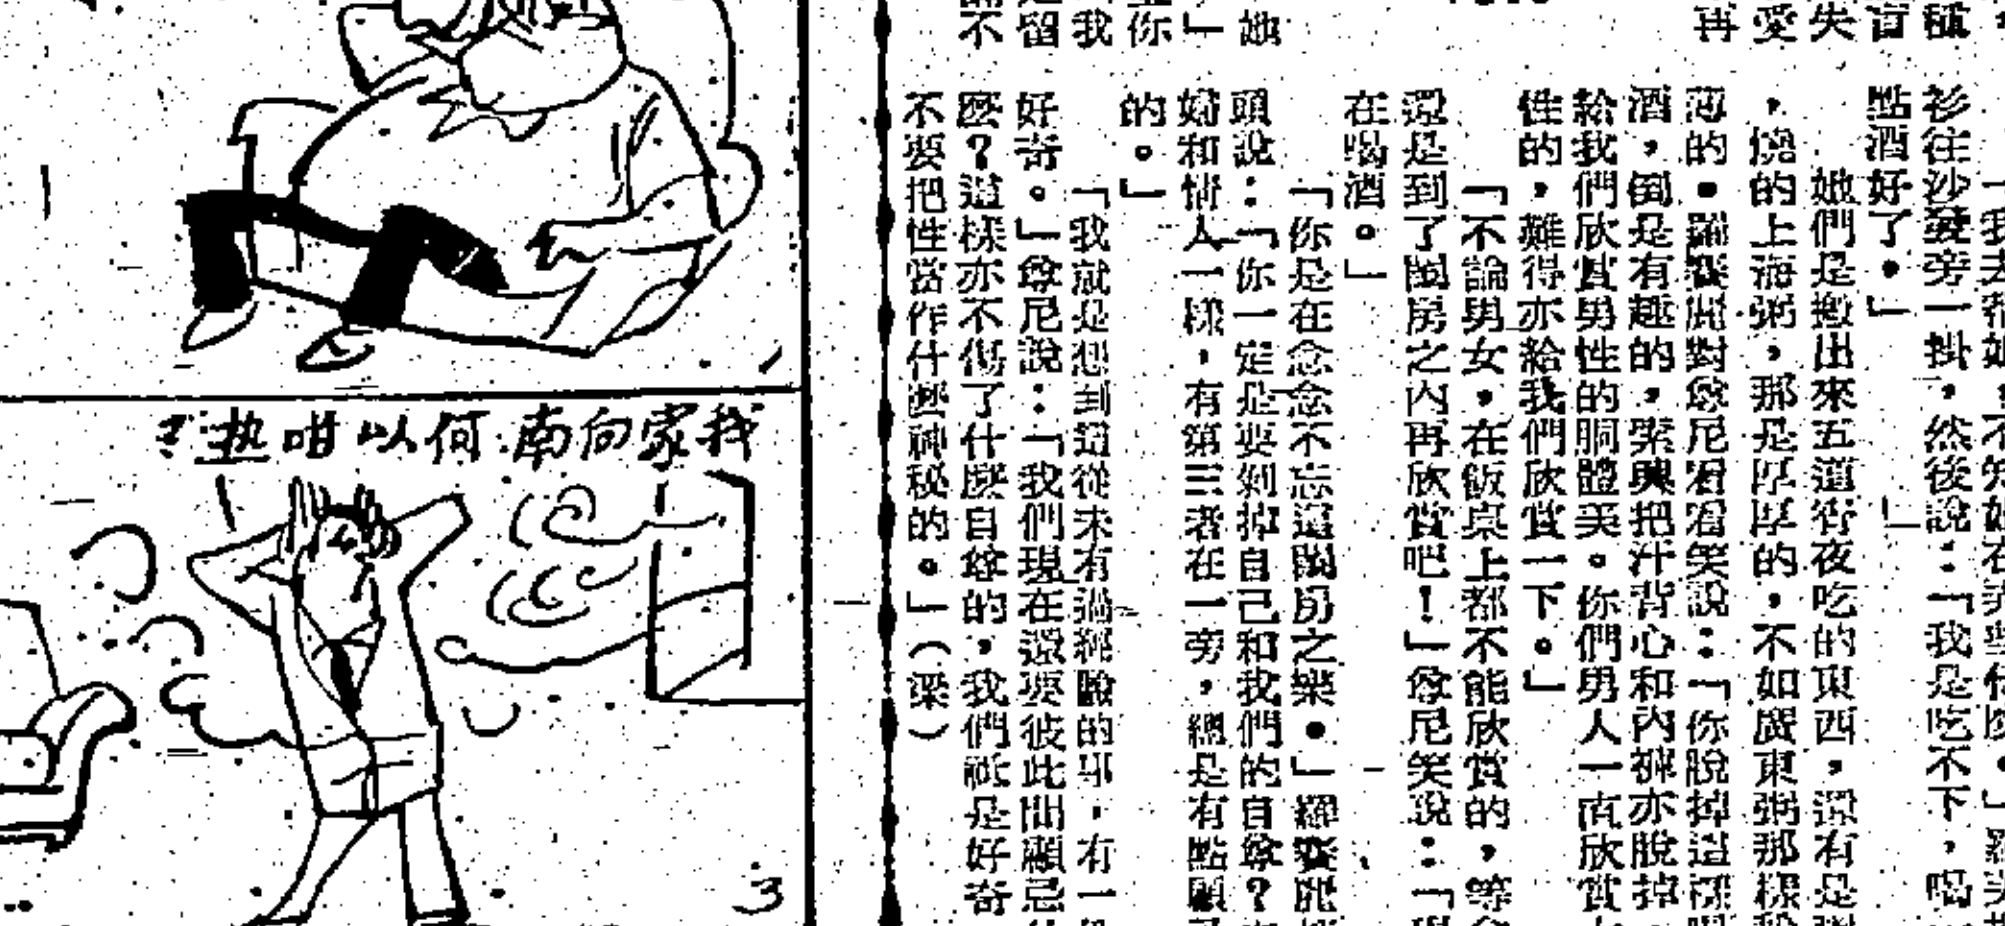 種
盲
失
愛
再
她
」
你
我
留
不
衫往沙發旁一掛，然後說：「我是吃不下，喝
點酒好了。」
她們是搬出來五道宵夜吃的東西，還有是
，燒的上海粥，那是厚厚的，不如廣東粥那樣
薄的。羅賽麗對尊尼看着笑說：「你脫掉這
酒，倒是有趣的，索興把汗背心和內褲亦脫掉，
給我們欣賞男性的胴體美。你們男人一直欣賞
性的，難得亦給我們欣賞一下。」
「不論男女，在飯桌上都不能欣賞的，等
還是到了閨房之內再欣賞吧！」尊尼笑說：「
在喝酒。」
「你是在念念不忘這閨房之樂。」羅賽麗
頭說：「你一定是要剝掉自己和我們的自尊？
婦和情人一樣，有第三者在一旁，總是有點顧
的。」
「我就是想到這從未有過經驗的事，有一
好奇。」尊尼說：「我們現在還要彼此間顧忌
麼？這樣亦不傷了什麼自尊的，我們祇是好奇
不要把性當作什麼神秘的。」（梁）
我家向南.何以咁热?
3